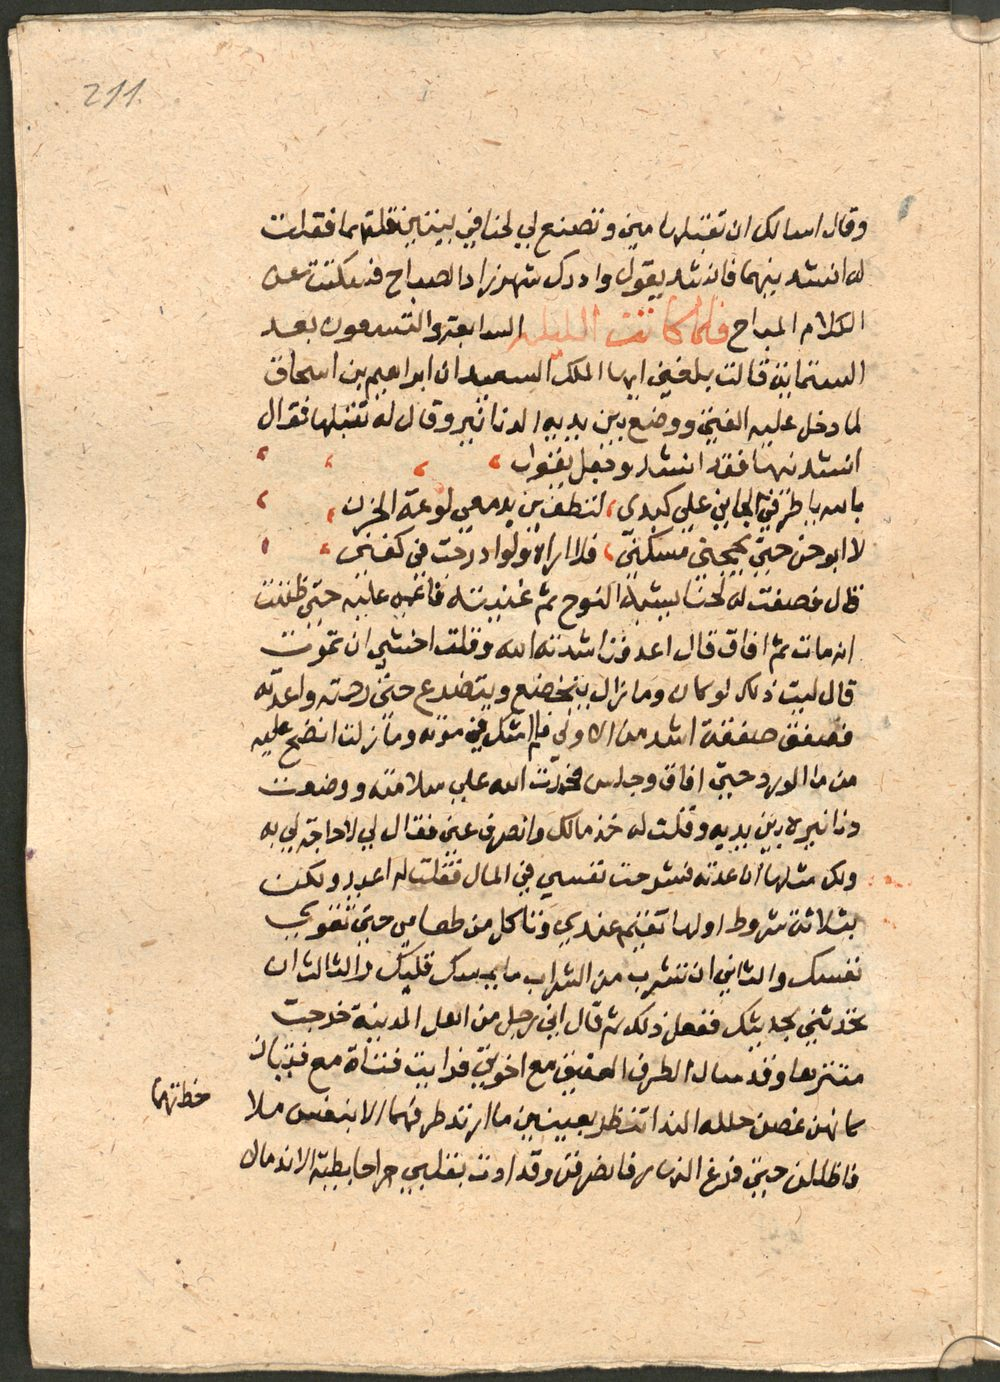 211
وقال اسالك ان تقبلها مني وتصنع لي لحنا في بيتين قلتهما فقلت
له انشدنيهما فانشد يقول وادرك شهرزاد الصباح فسكتت عن
الكلام المباح فلما كانت الليلة السابعة والتسعون بعد
الستماية قالت بلغني ايها الملك السعيد ان ابراهيم بن اسحاق
لما دخل عليه الفتى ووضع بين يديه الدنانير وقال له تقبلها فقال
انشدنيها فقد انشد وجعل يقول
بالله يا طرفي الجاني على كبدي لتطفين بدمعي لوعة الحزن
لا ابوحن حتى تحيجي مسكني فلا اراه ولو ادرجت في كفني
قال فصنعت له لحنا يشبه النوح ثم غنيته فاغمي عليه حتى ظننت
انه مات ثم افاق قال اعد فناشدته الله وقلت اخشي ان تموت
قال ليت ذلك لو كان وما زال يتخضع ويتضرع حتى رحمته واعدته
فصعق صعقة اشد من الاولي فلم اشك في موته وما زلت انضح عليه
من ما الورد حتي افاق وجلس فحمدت الله على سلامته ووضعت
دنانيره بين يديه وقلت له خذ مالك وانصرف عني فقال لي لا حاجة لي به
ولك مثلها ان اعدته فشرحت نفسي في المال فقلت له اعيد ولكن
بثلاثة شروط اولها تقيم عندي وتاكل من طعامي حتي تقوي
نفسك والثاني ان تشرب من الشراب ما يمسك قلبك والثالث ان
تحدثني بحديثك ففعل ذلك ثم قال اني رجل من اهل المدينة خرجت
متنزها وقد سال الطرف العقيق مع اخوتي فرايت فتاة مع فتيان
كانهن غصن جلله الندا تنظر بعينين ما ارتد طرفهما الا بنفس ملا
خطتهما
فاظللن حتي فرغ النهار فانصرفن وقد اوت بقلبي جراحا بطية الاندمال